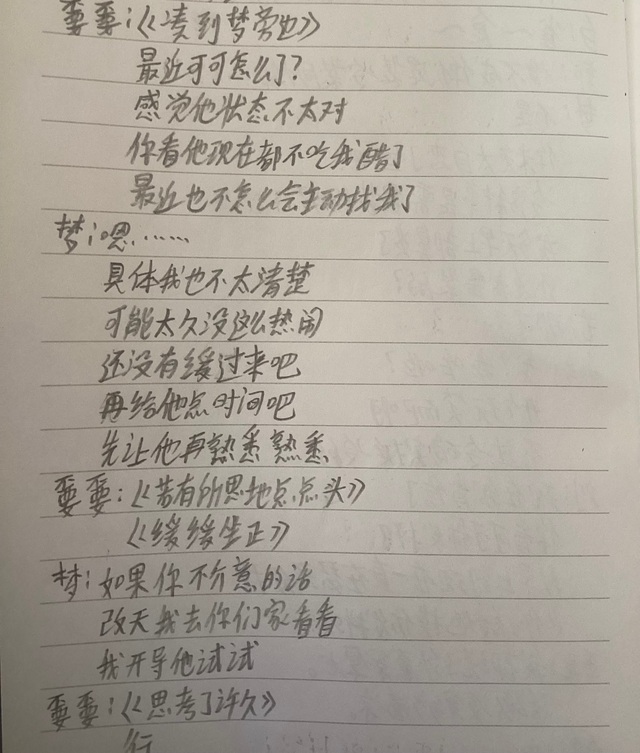 要要:《凑到梦旁边》
最近可可怎么了?
感觉他状态不太对
你看他现在都不吃我醋了
最近也不怎么会主动找我了
梦:嗯……
具体我也不太清楚
可能太久没这么热闹
还没有缓过来吧
再给他点时间吧
先让他再熟悉熟悉
要要:《若有所思地点点头》
《缓缓坐正》
梦:如果你不介意的话
改天我去你们家看看
我开导他试试
要要:《思考了许久》
行